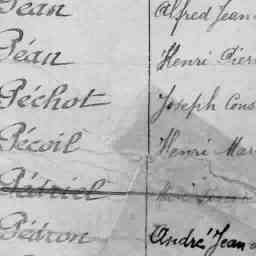 Jean Alfred Jean
Péan Henri Pier
Péchot Joseph Cons
Pécoil Henri Mar
Pédriel
Pédron André Jean